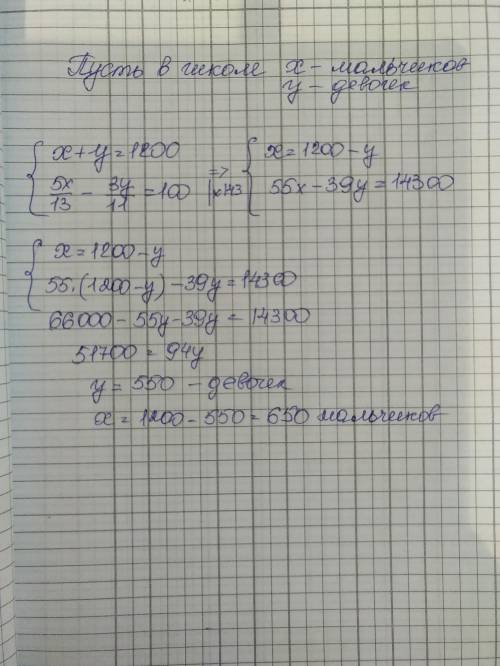 Пусть в школе х - мальчиков
у - девочек
{ x+y=1200
5x/13 - 3y/11 = 100 |x143
=> { x=1200-y
55x-39y=14300
{ x=1200-y
55·(1200-y)-39y=14300
66000-55y-39y=14300
51700=94y
y=550 - девочек
x=1200-550=650 мальчиков